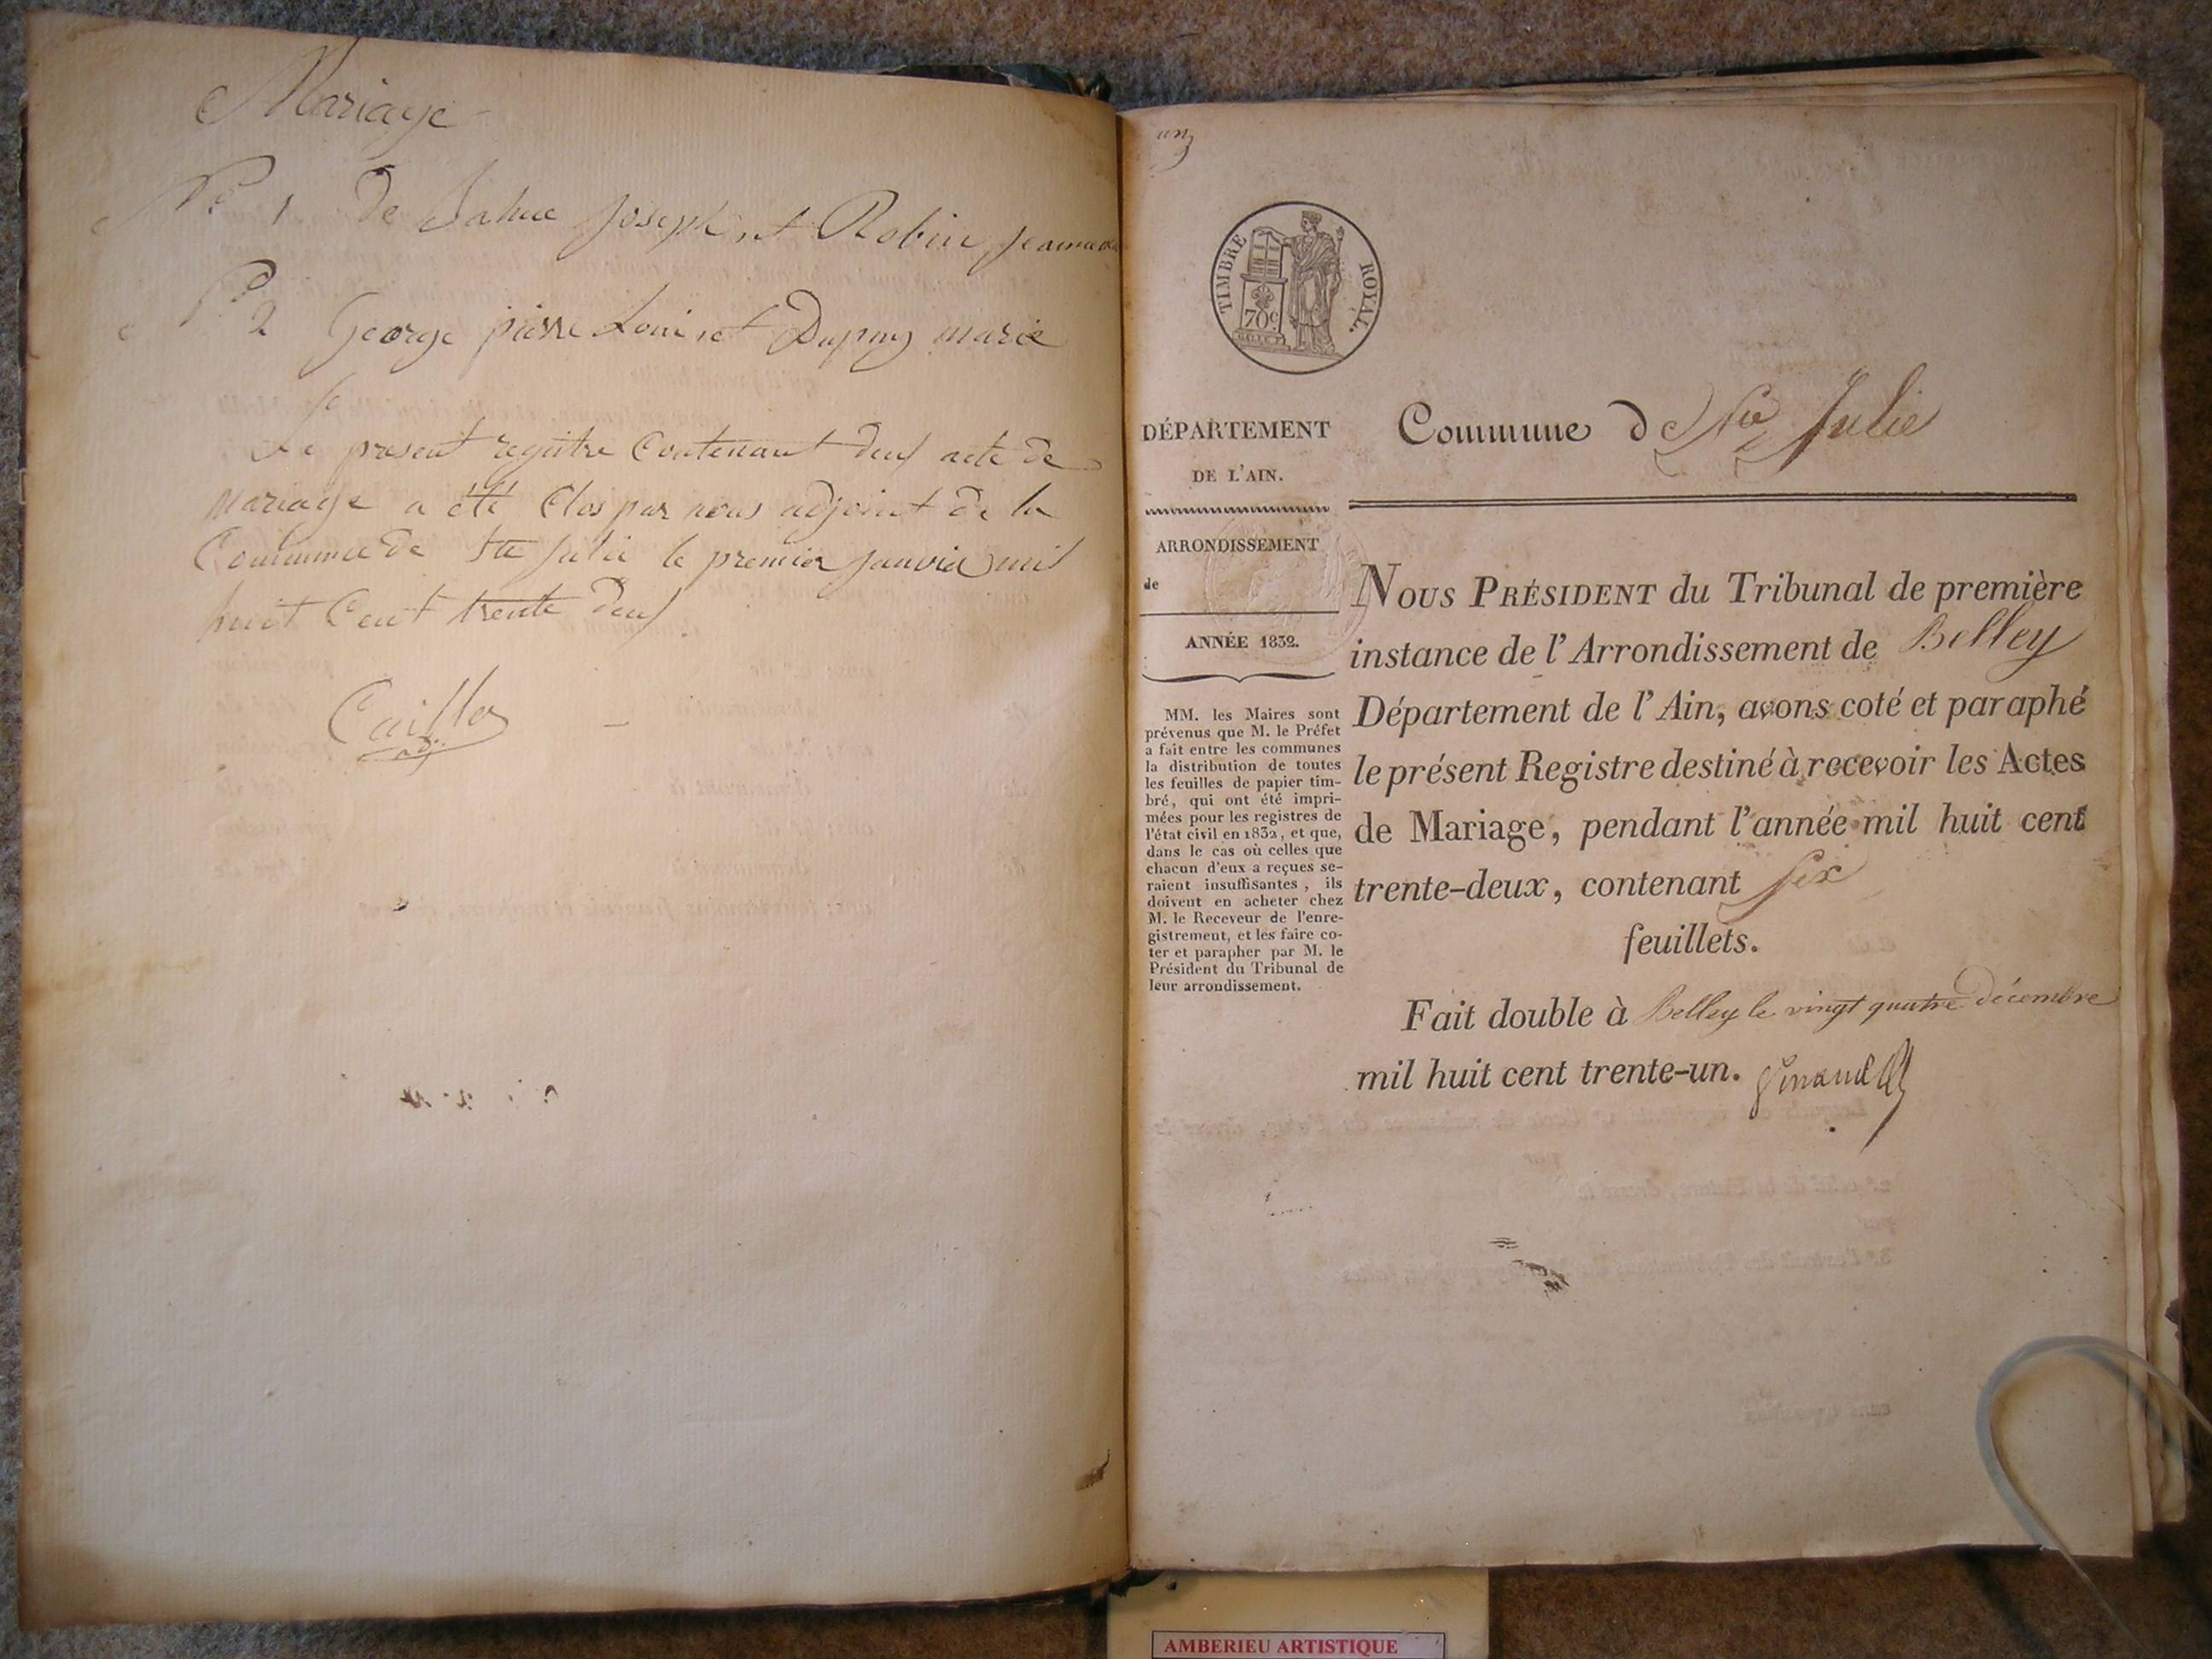 Mariage
N.o 1 de Joseph et Robin
N.o 2 George pierre Loui et Dupuy marie
Le present registre Contenant deux acte de
Mariage a été Clos par nous adjoint de la
Commune de Ste Julie le premier janvier mil
huit Cent trente deux
adj.
un
TIMBRE ROYAL.
70c
DÉPARTEMENT
DE L'AIN.
ARRONDISSEMENT
de
ANNÉE 1832.
MM. les Maires sont
prévenus que M. le Préfet
a fait entre les communes
la distribution de toutes
les feuilles de papier tim-
bré, qui ont été impri-
mées pour les registres de
l'état civil en 1832, et que,
dans le cas où celles que
chacun d'eux a reçues se-
raient insuffisantes, ils
doivent en acheter chez
M. le Receveur de l'enre-
gistrement, et les faire co-
ter et parapher par M. le
Président du Tribunal de
leur arrondissement.
Commune de Ste Julie
NOUS PRÉSIDENT du Tribunal de première
instance de l'Arrondissement de Belley
Département de l'Ain, avons coté et paraphé
le présent Registre destiné à recevoir les Actes
de Mariage, pendant l'année mil huit cent
trente-deux, contenant six
feuillets.
Fait double à Belley le vingt quatre décembre
mil huit cent trente-un.
AMBERIEU ARTISTIQUE